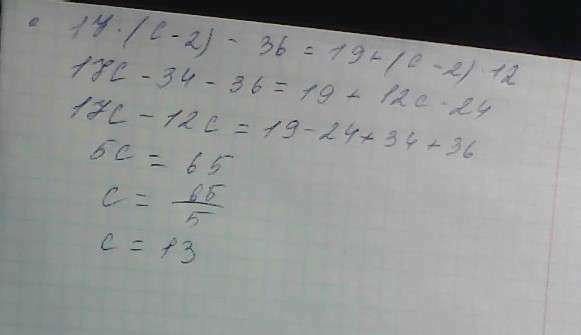 17·(c-2) - 36 = 19+(c-2)·12
17c - 34 - 36 = 19 + 12c - 24
17c - 12c = 19 - 24 + 34 + 36
5c = 65
c = 65/5
c = 13